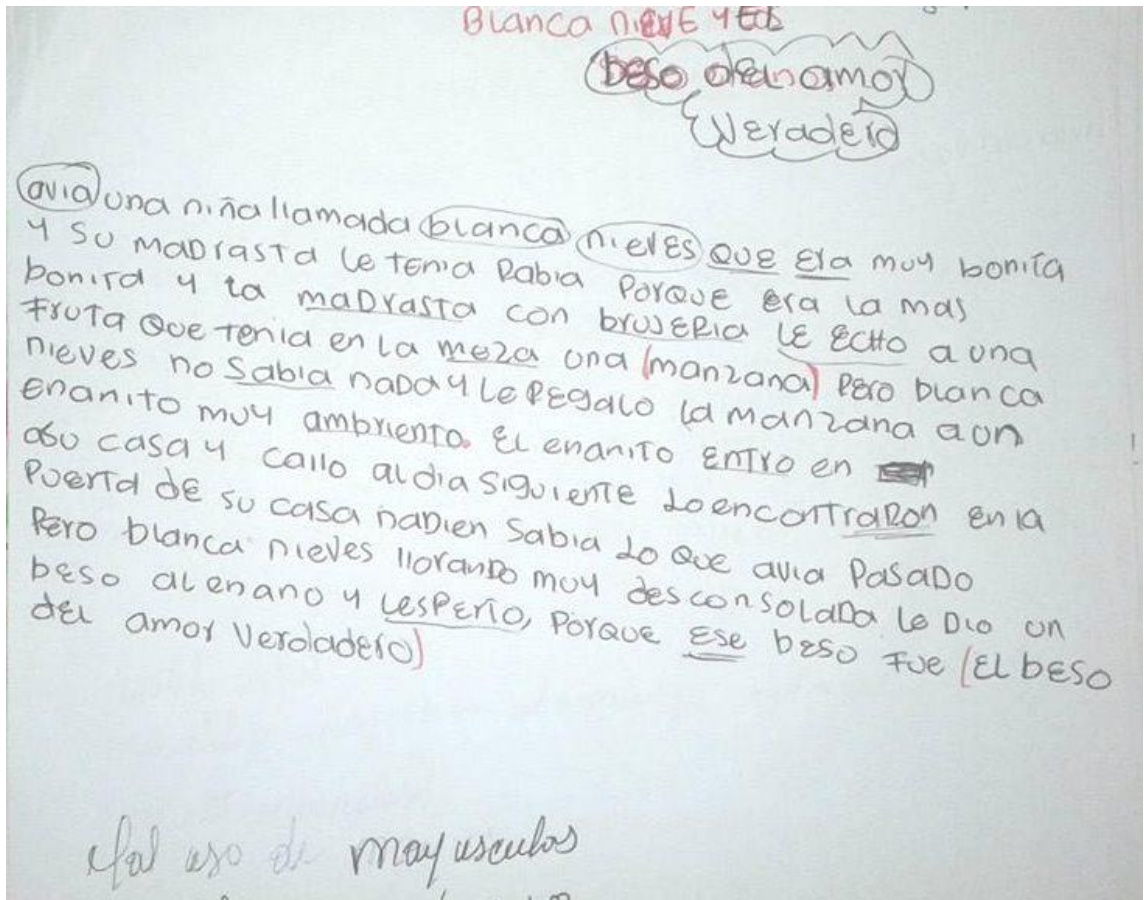 Blanca nieve y El
beso del amor
Veradero
avia una niña llamada blanca nieves QUE Era muy bonita
y SU MADrasTa Le tenia Rabia PorQUE era la mas
bonita y la MADrasTa con brUJERia LE ECHO a una
FrUTa QUe Tenia en La meza una (manzana) Pero blanca
nieves no Sabia nada y Le REgalo la manzana a un
enanito muy ambriento. EL enanito Entro en
a su casa y callo al dia siguiente Lo encontraRon en la
PUerta dE su casa naDien Sabia Lo QUe avia PasaDo
Pero blanca nieves lloranDo muy desconsolaDa Le Dio un
bEso aL enano y LesPErto, PorQUe ESe bEso FUe (EL bESO
dEL amor Verdadero)
Mal uso de mayusculas